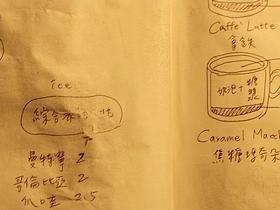 ice
綜合冰
曼特寧 2
哥倫比亞 2
爪哇 2.5
Caffe' Latte
拿鐵
奶泡+
糖漿
Caramel Macch
焦糖瑪奇朵